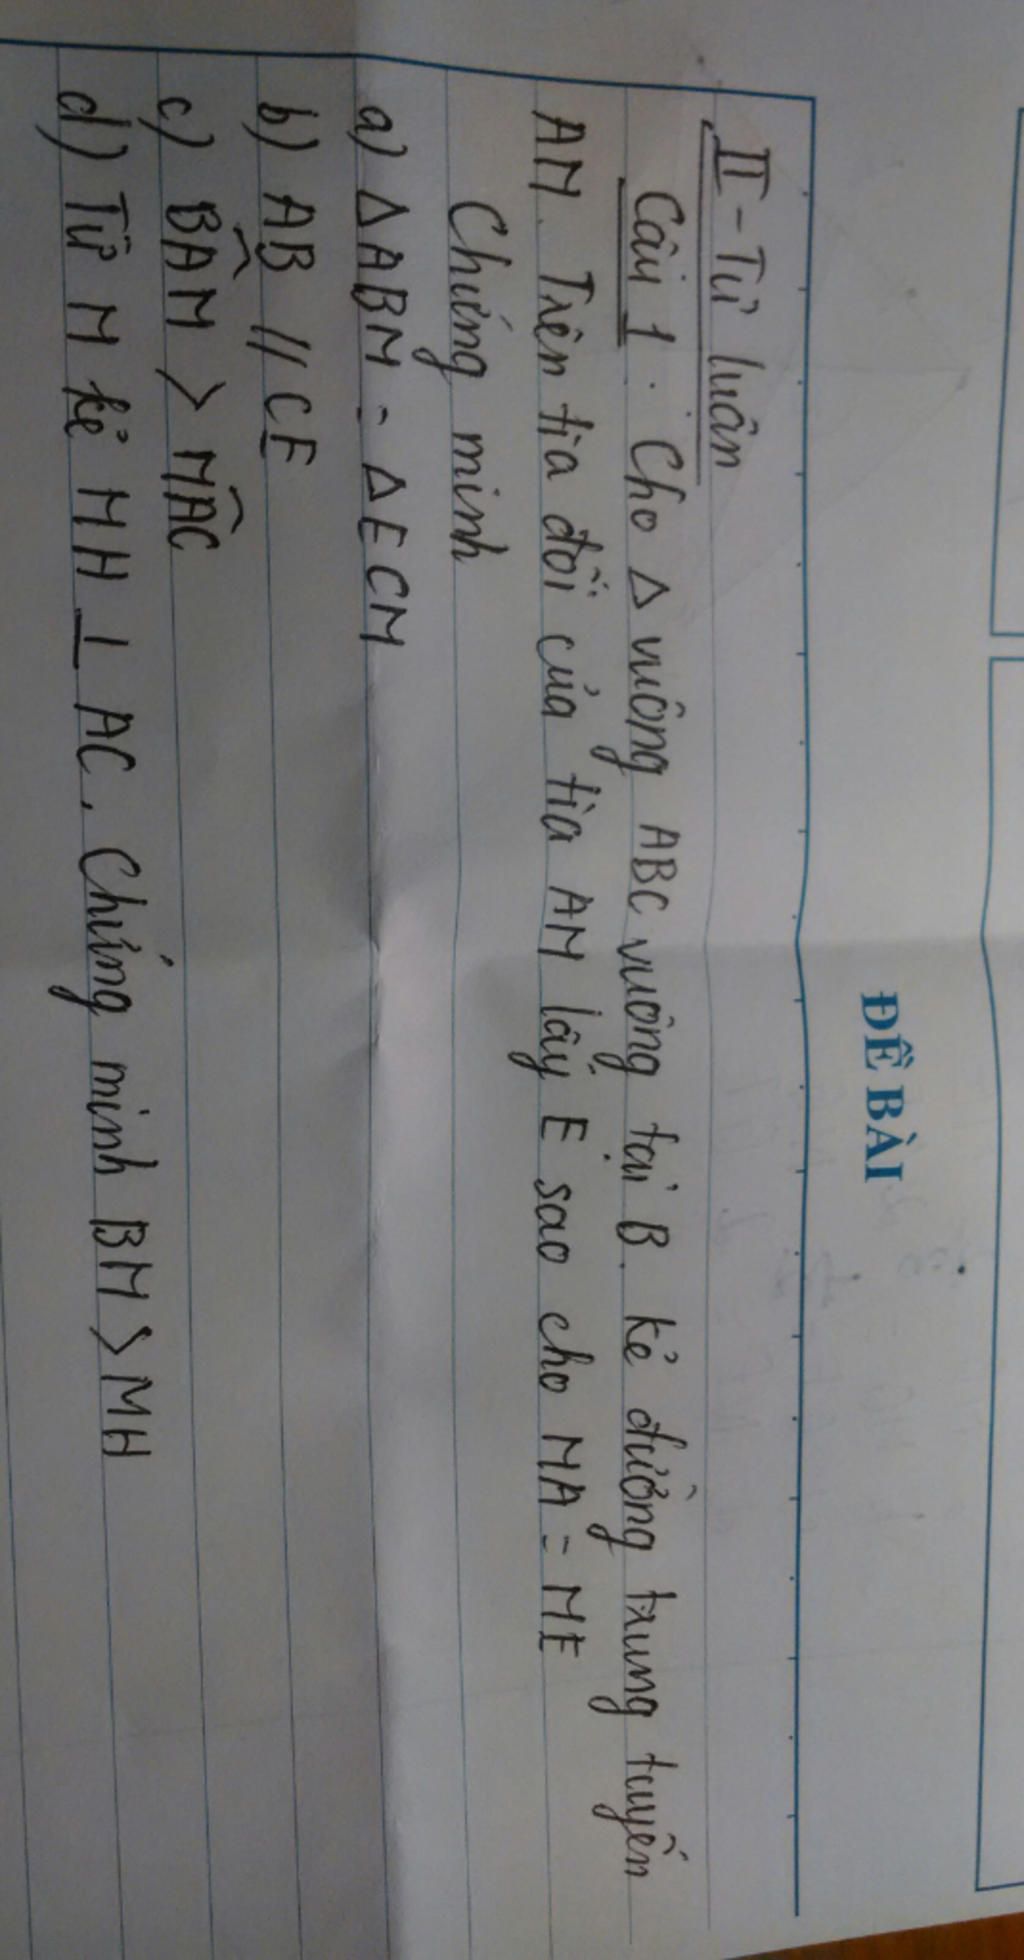 ĐỀ BÀI
II - Tự luận
Câu 1 : Cho Δ vuông ABC vuông tại B. kẻ đường trung tuyến
AM. Trên tia đối của tia AM lấy E sao cho MA = ME
Chứng minh
a) ΔABM = ΔECM
b) AB // CE
c) BAM > MAC
d) Từ M kẻ MH ⊥ AC. Chứng minh BM > MH